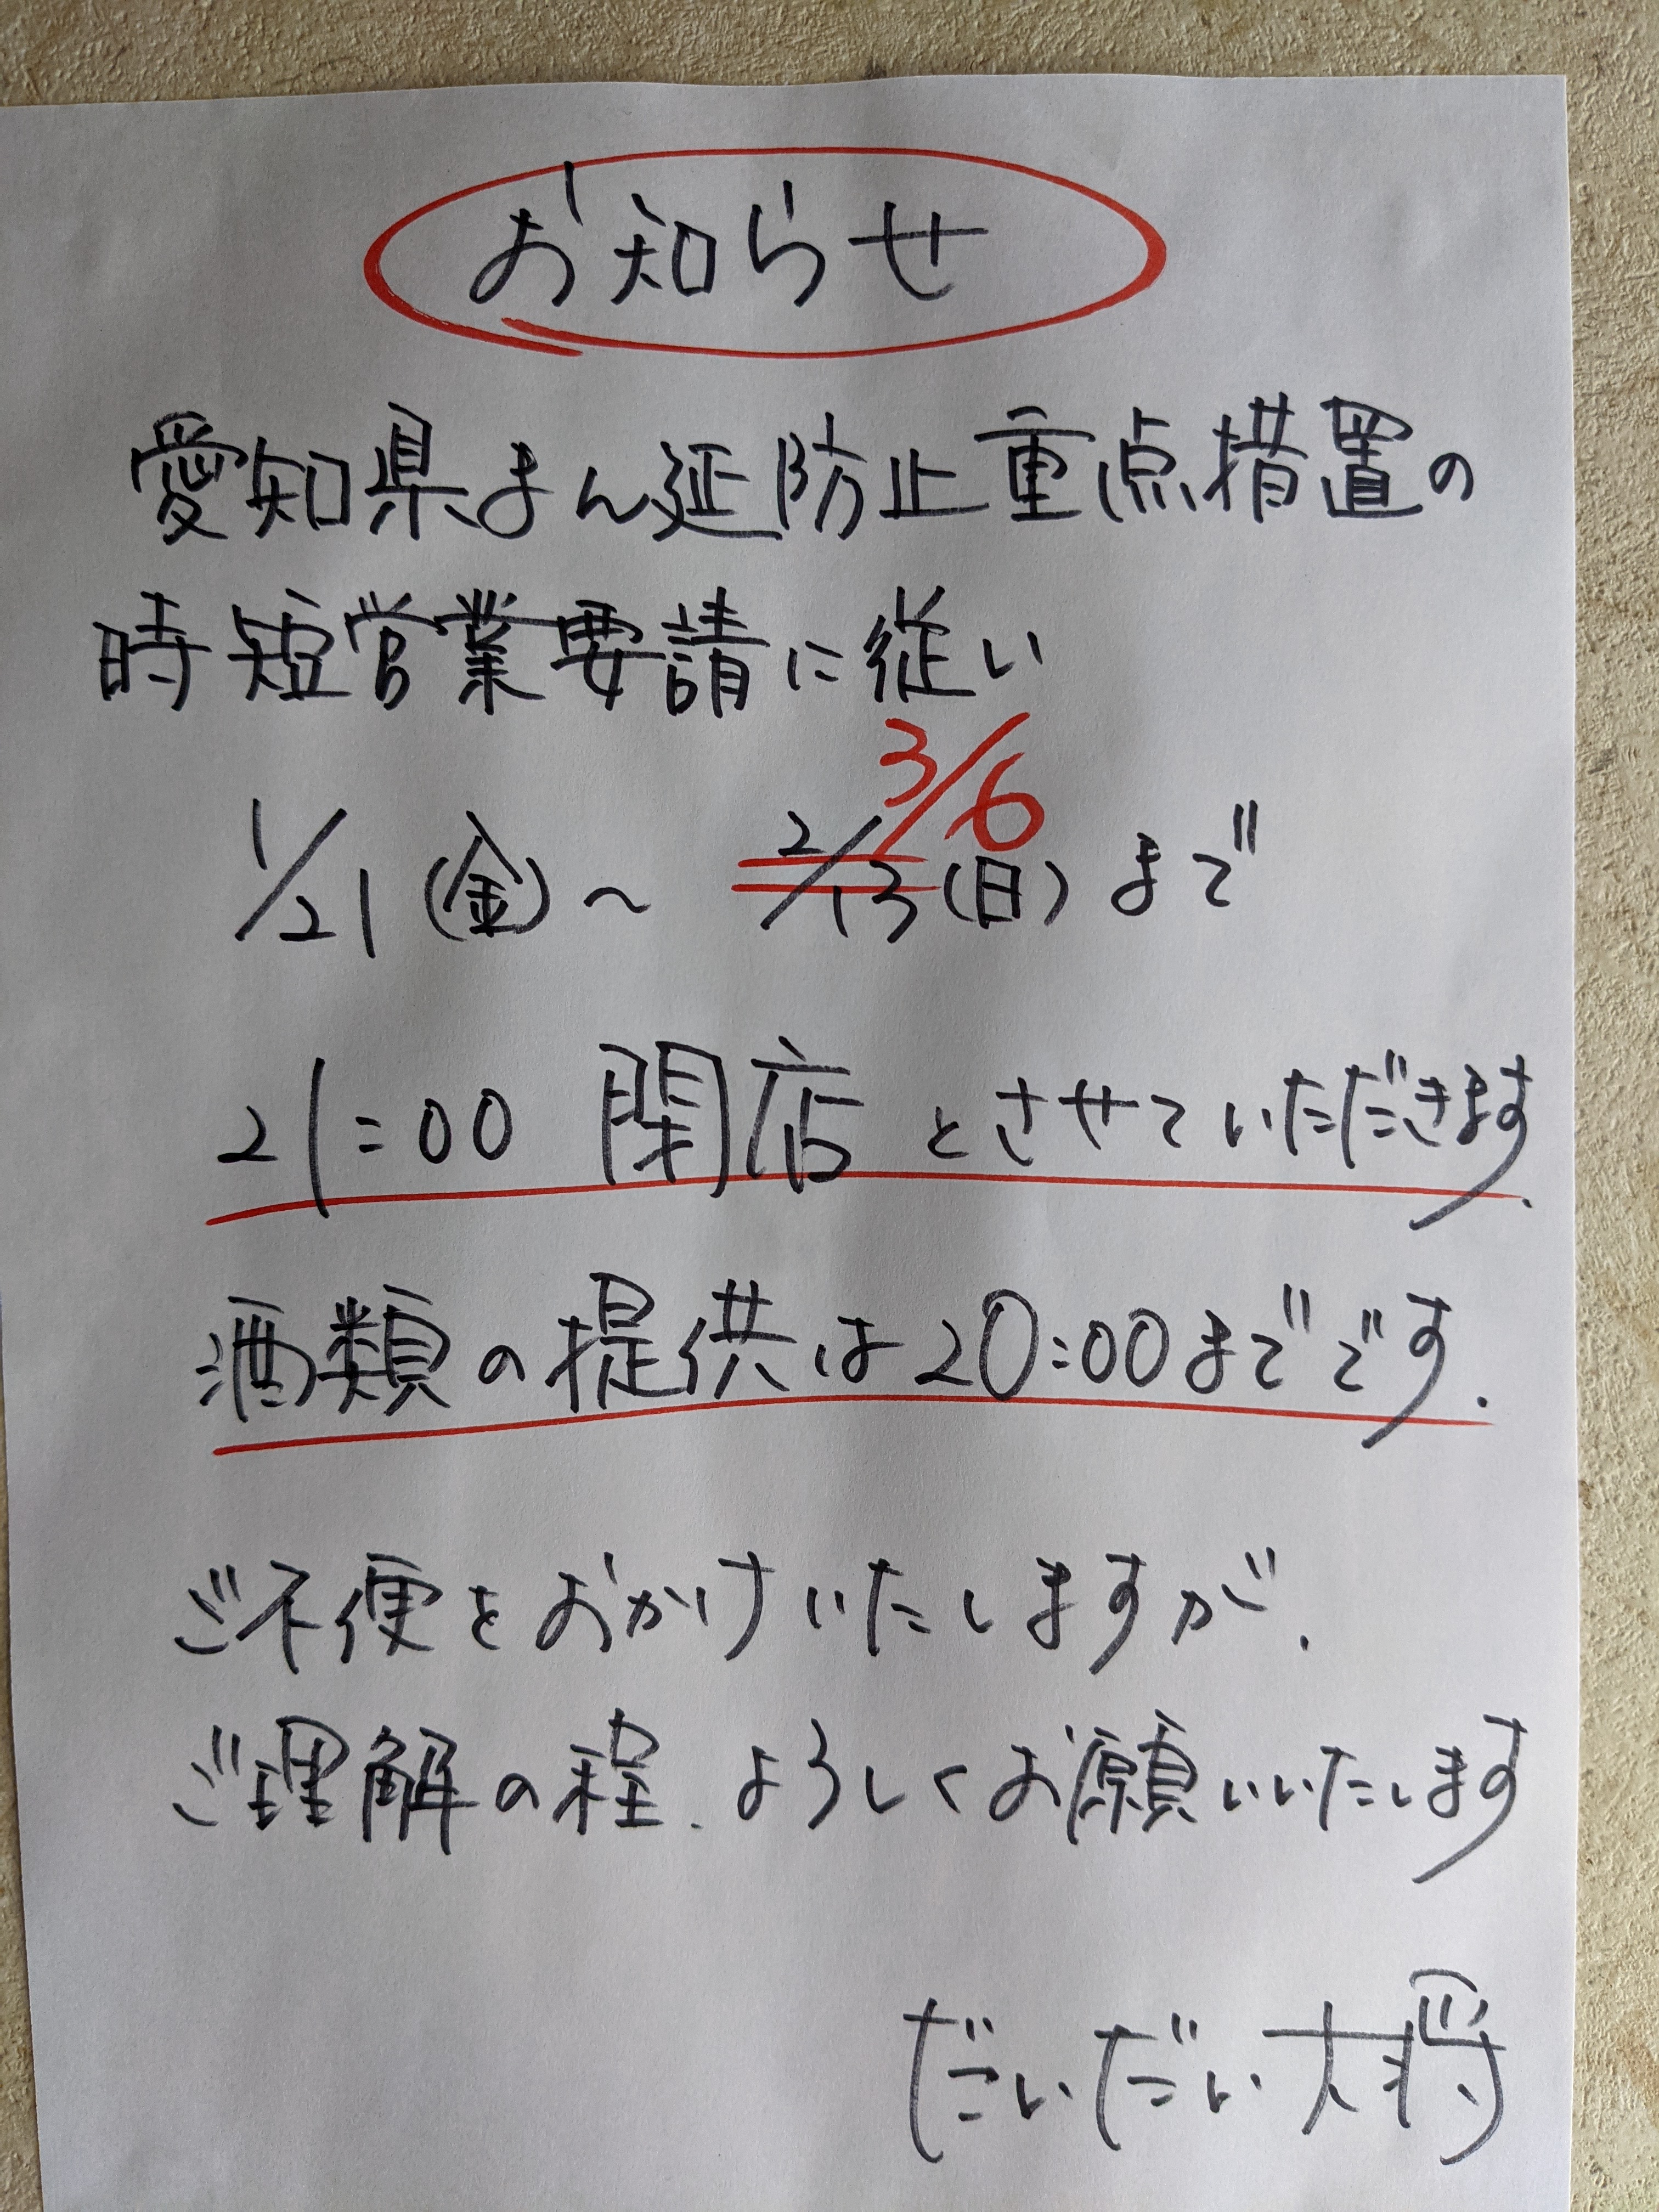 お知らせ
愛知県まん延防止重点措置の
時短営業要請に従い
3/6
1/21(金)〜 2/13(日)まで
21:00 閉店とさせていただきます.
酒類の提供は20:00までです.
ご不便をおかけいたしますが、
ご理解の程、よろしくお願いいたします
だいだい大将